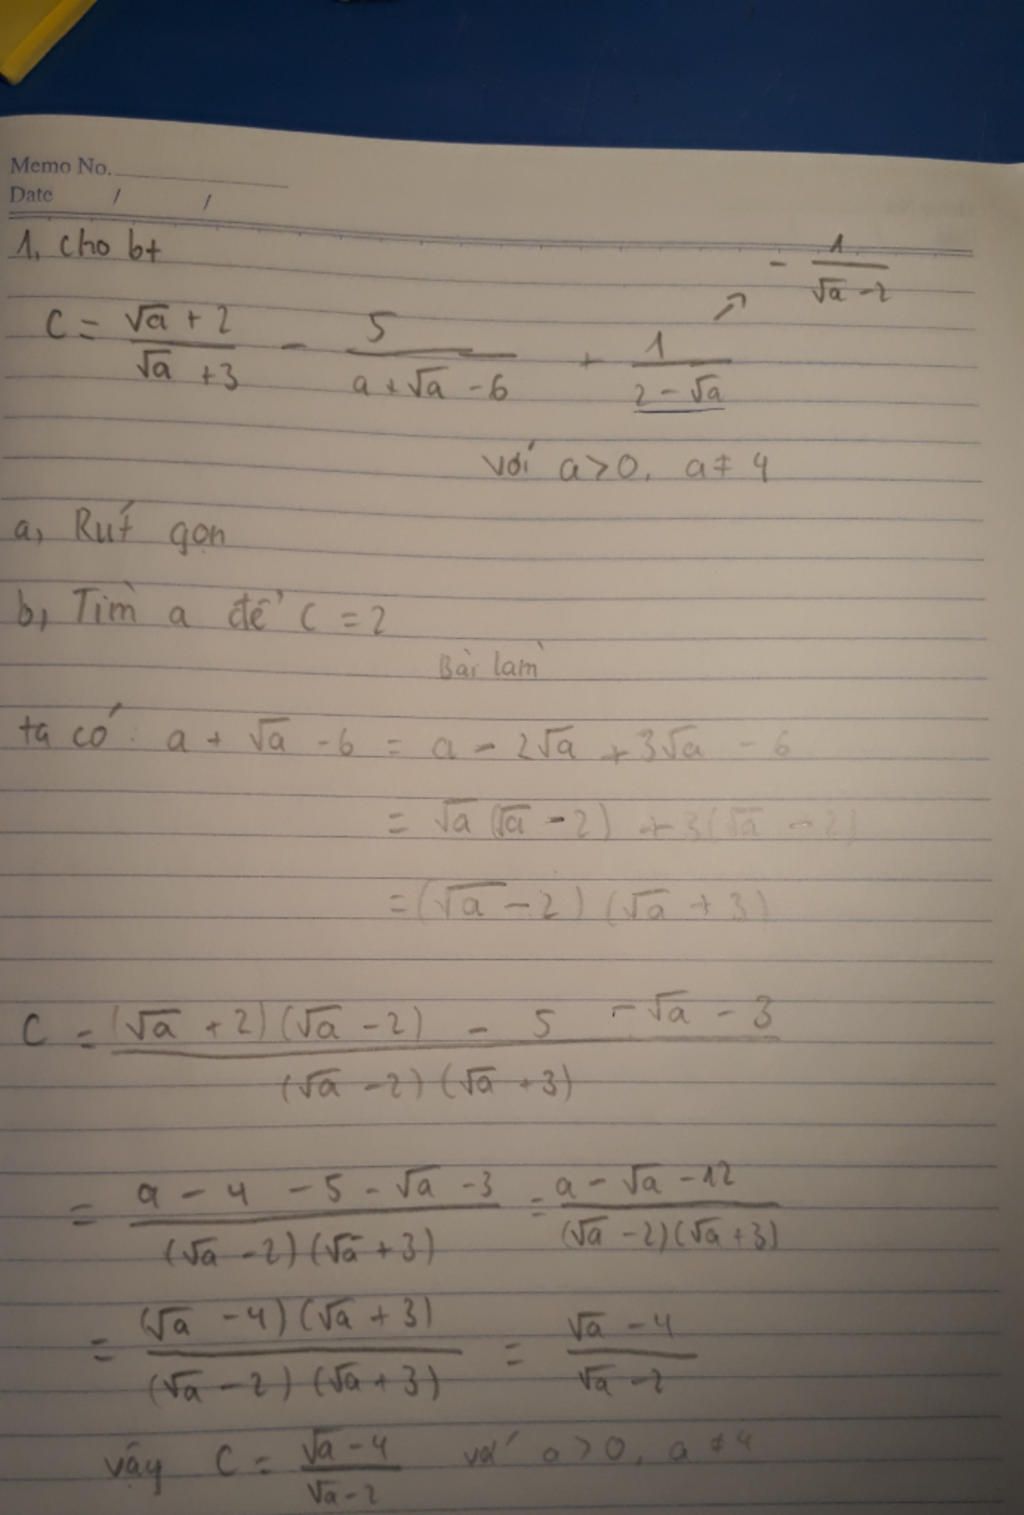 Memo No.
Date / /
1, cho bt
C = (√a + 2)/(√a + 3) - 5/(a + √a - 6) + 1/(2 - √a) ↗ - 1/(√a - 2)
với a > 0, a ≠ 4
a, Rút gọn
b, Tìm a để C = 2
Bài làm
ta có: a + √a - 6 = a - 2√a + 3√a - 6
= √a (√a - 2) + 3(√a - 2)
= (√a - 2) (√a + 3)
C = ((√a + 2)(√a - 2) - 5 - √a - 3)/((√a - 2)(√a + 3))
= (a - 4 - 5 - √a - 3)/((√a - 2)(√a + 3)) = (a - √a - 12)/((√a - 2)(√a + 3))
= ((√a - 4)(√a + 3))/((√a - 2)(√a + 3)) = (√a - 4)/(√a - 2)
vậy C = (√a - 4)/(√a - 2) với a > 0, a ≠ 4